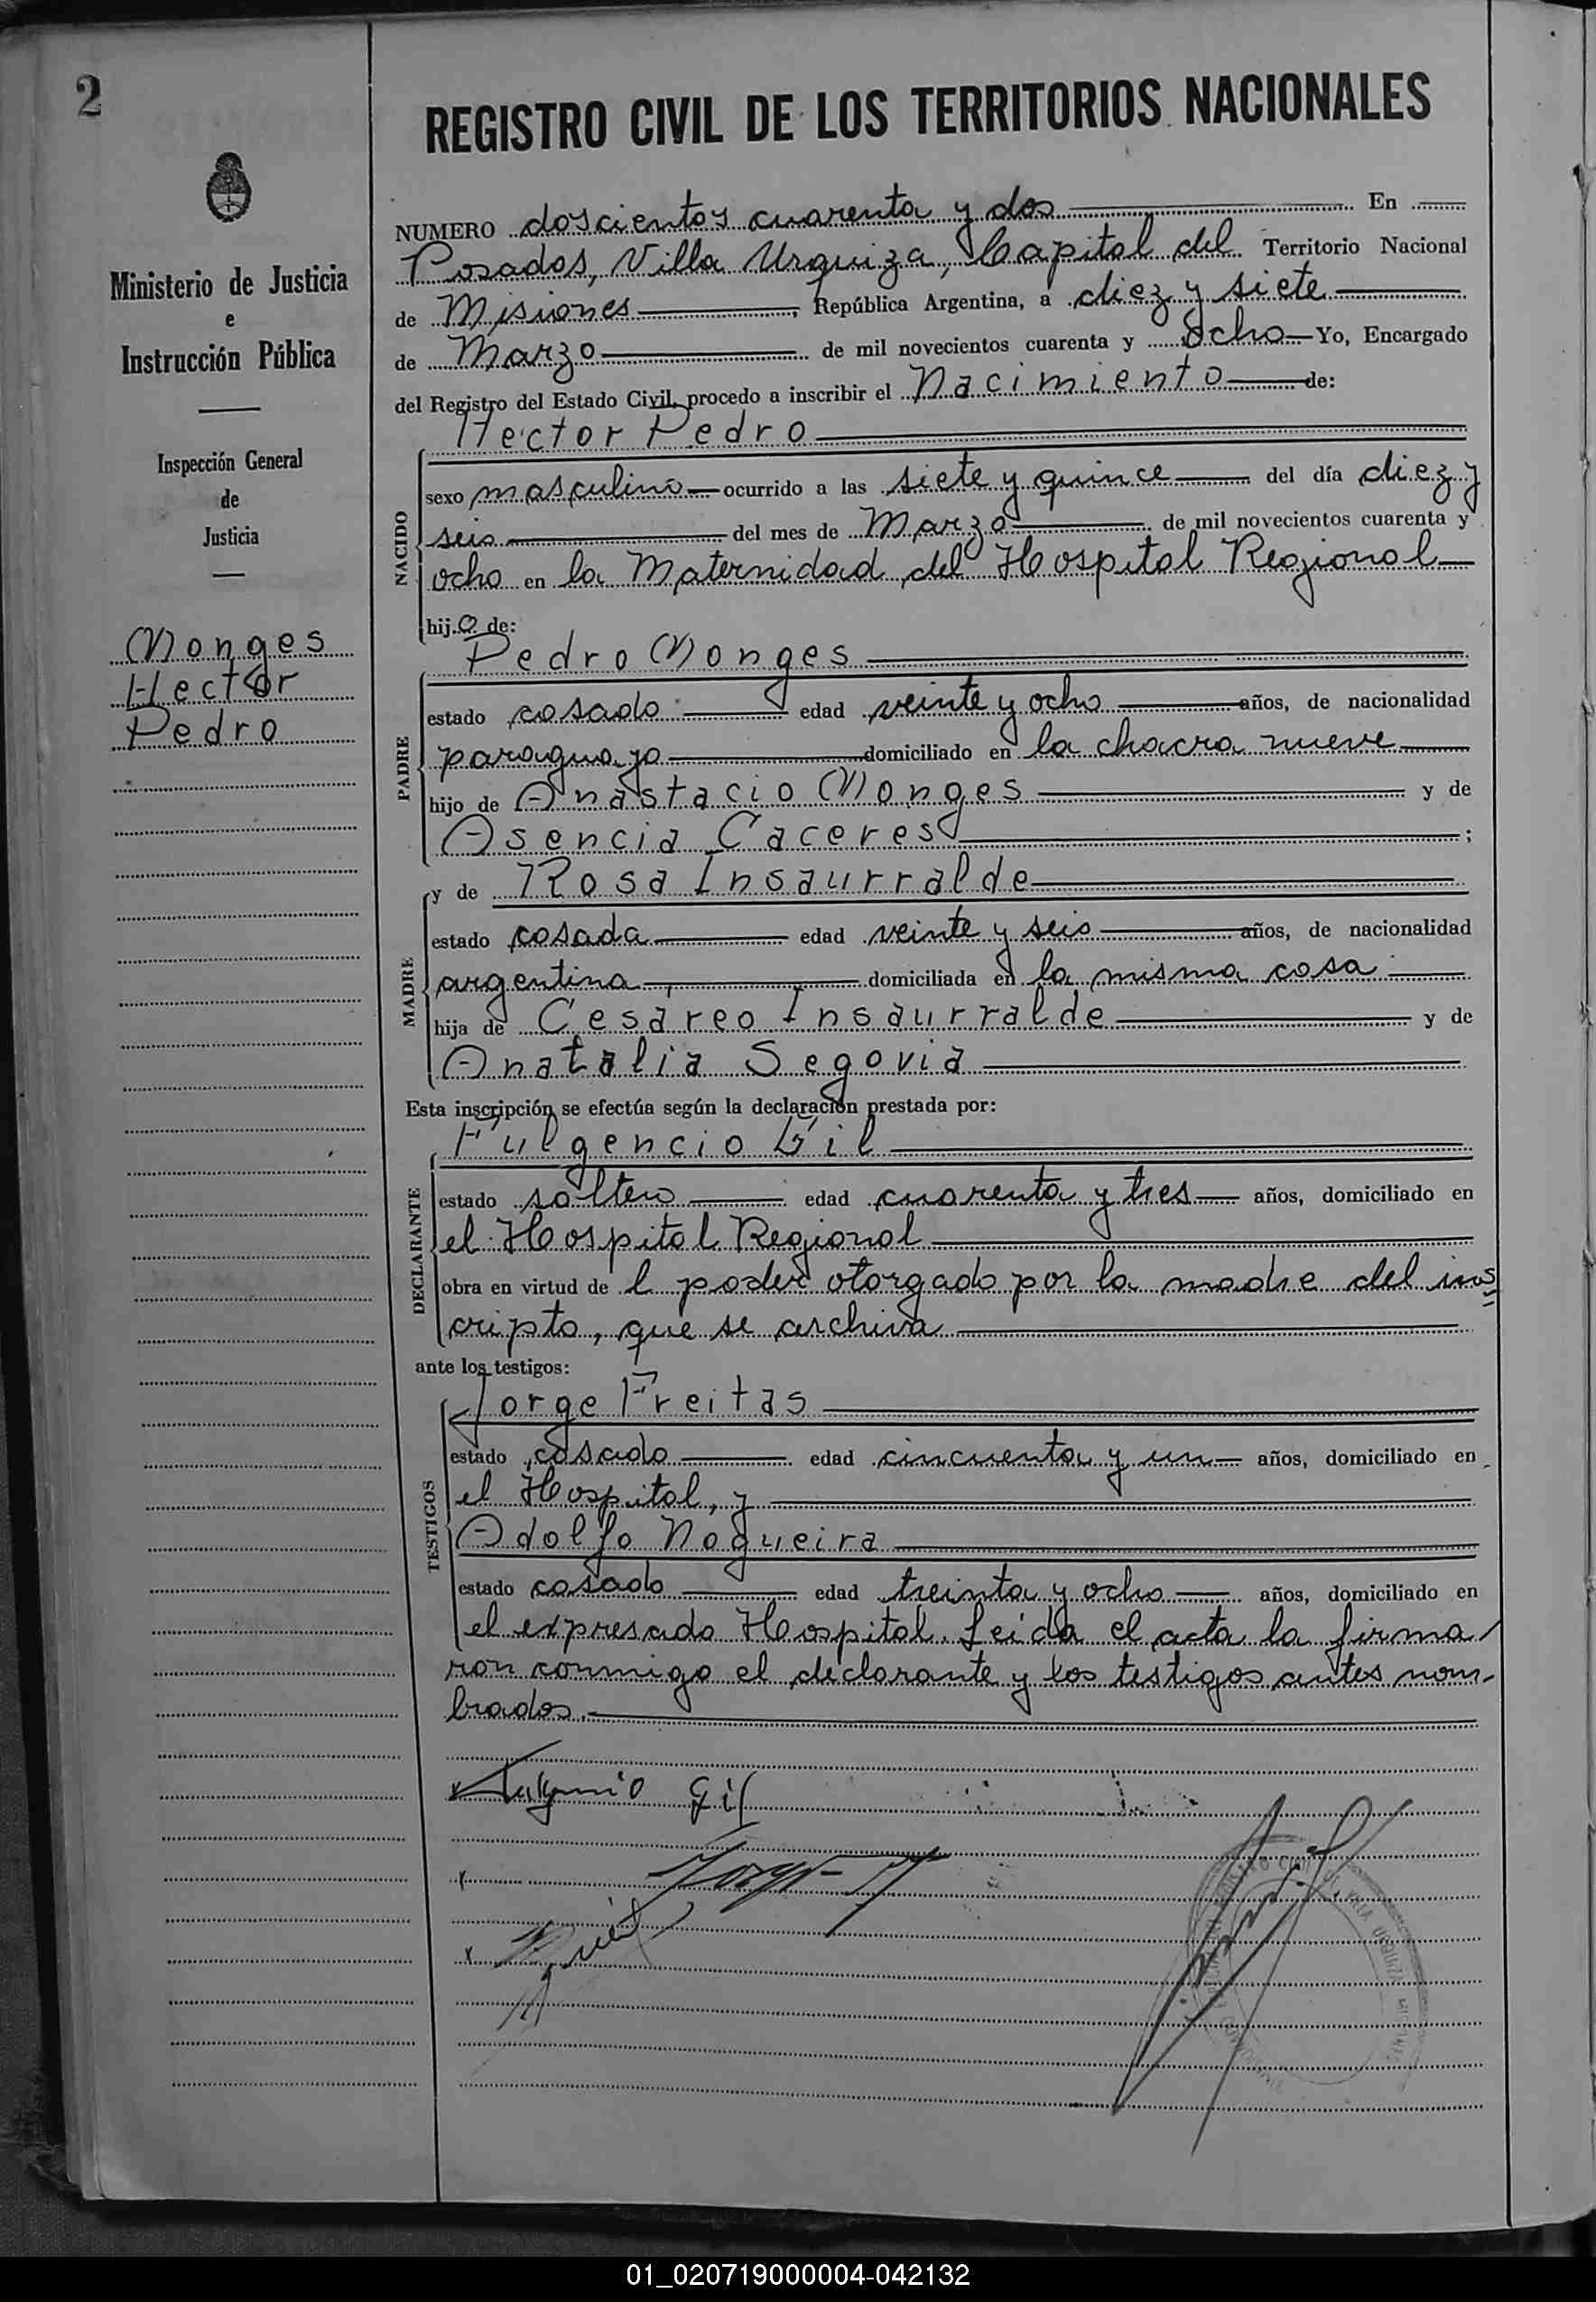 2
REGISTRO CIVIL DE LOS TERRITORIOS NACIONALES
Ministerio de Justicia
e
Instrucción Pública
Inspección General
de
Justicia
Monges
Hector
Pedro
NUMERO doscientos cuarenta y dos En
Posadas, Villa Urquiza, Capital del Territorio Nacional
de Misiones, República Argentina, a diez y siete
de Marzo de mil novecientos cuarenta y ocho Yo, Encargado
del Registro del Estado Civil, procedo a inscribir el Nacimiento de:
Hector Pedro
NACIDO
sexo masculino ocurrido a las siete y quince del día diez y
seis del mes de Marzo de mil novecientos cuarenta y
ocho en la Maternidad del Hospital Regional
hijo de:
Pedro Monges
PADRE
estado casado edad veinte y ocho años, de nacionalidad
paraguayo domiciliado en la chacra nueve
hijo de Anastacio Monges y de
Asencia Caceres;
y de Rosa Insaurralde
MADRE
estado casada edad veinte y seis años, de nacionalidad
argentina, domiciliada en la misma casa
hija de Cesareo Insaurralde y de
Anatalia Segovia
Esta inscripción se efectúa según la declaración prestada por:
Fulgencio Gil
DECLARANTE
estado soltero edad cuarenta y tres años, domiciliado en
el Hospital Regional
obra en virtud de l poder otorgado por la madre del ins
cripto, que se archiva
ante los testigos:
Jorge Freitas
TESTIGOS
estado casado edad cincuenta y un años, domiciliado en
el Hospital, y
Adolfo Nogueira
estado casado edad treinta y ocho años, domiciliado en
el expresado Hospital. Leida el acta la firma
ron conmigo el declarante y los testigos antes nom-
brados.
Fulgencio Gil
VILLA URQUIZA MISIONES
01_020719000004-042132